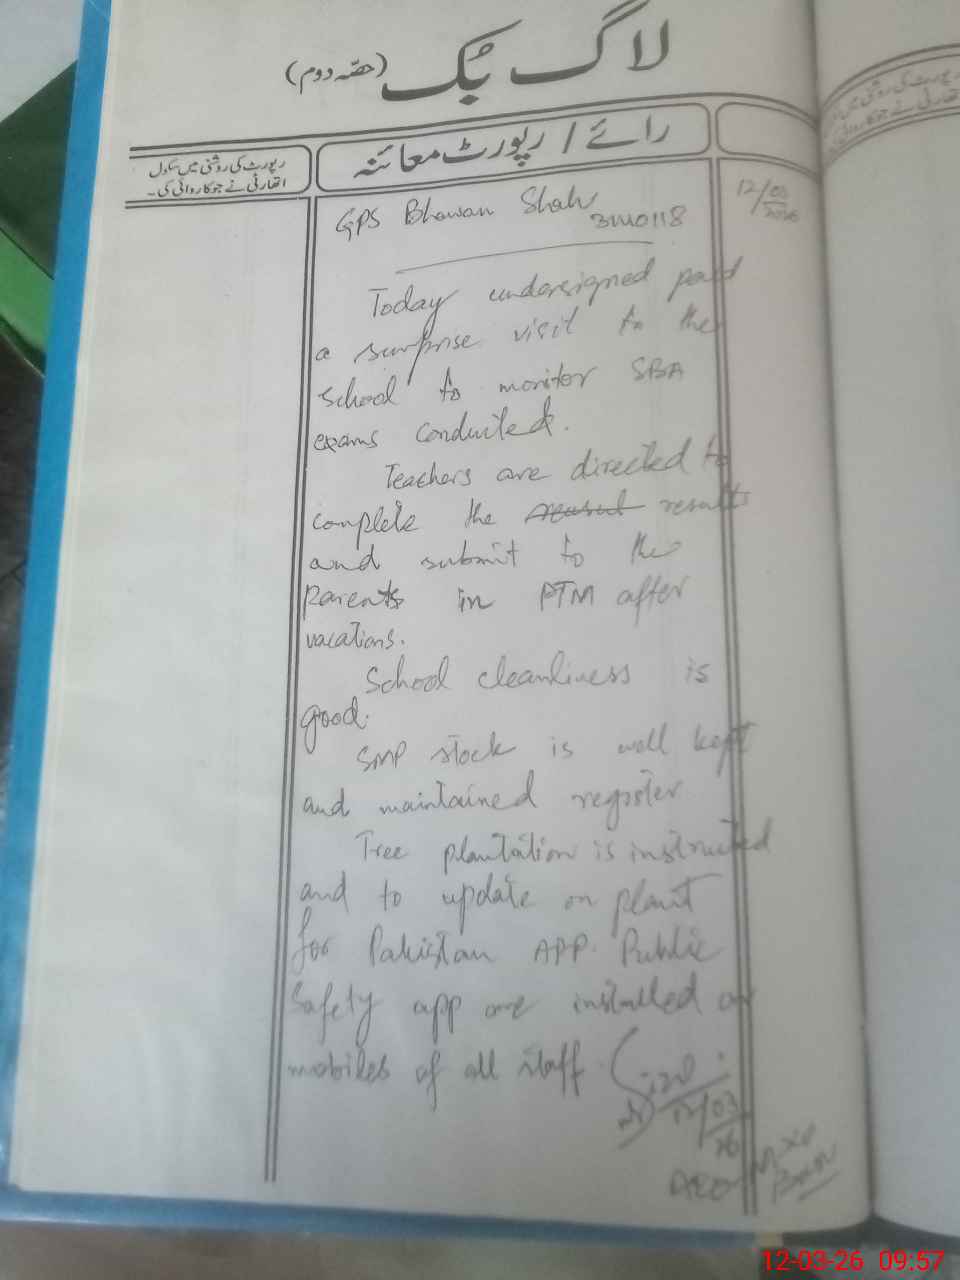 لاگ بُک (حصّہ دوم)
رائے / رپورٹ معائنہ
رپورٹ کی روشنی میں سکول
اتھارٹی نے جو کاروائی کی۔
12/03/2026
GPS Bhawan Shah
31110118
Today undersigned paid
a surprise visit to the
school to monitor SBA
exams conducted.
Teachers are directed to
complete the results
and submit to the
parents in PTM after
vacations.
School cleanliness is
good.
SMP stock is well kept
and maintained register
Tree plantation is instructed
and to update on plant
for Pakistan APP. Public
Safety app are installed on
mobiles of all staff.
12/03/26
AEO
12-03-26 09:57